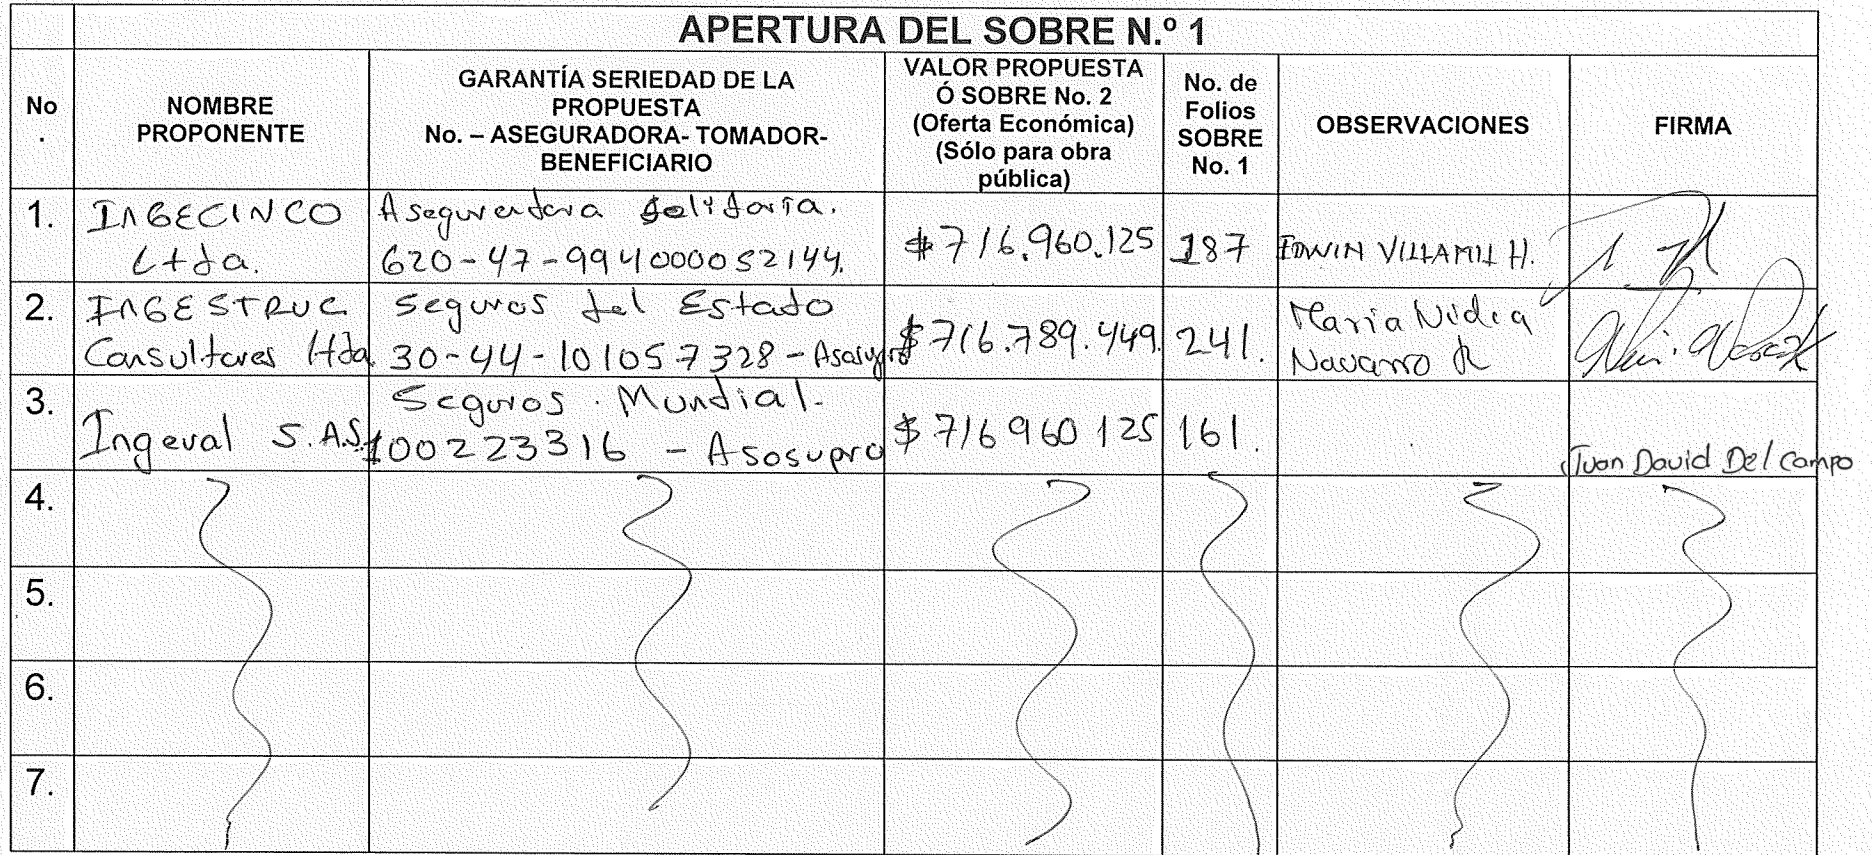 APERTURA DEL SOBRE N.º 1
No
.
NOMBRE
PROPONENTE
GARANTÍA SERIEDAD DE LA
PROPUESTA
No. – ASEGURADORA- TOMADOR-
BENEFICIARIO
VALOR PROPUESTA
Ó SOBRE No. 2
(Oferta Económica)
(Sólo para obra
pública)
No. de
Folios
SOBRE
No. 1
OBSERVACIONES
FIRMA
1.
INGECINCO
Ltda.
Aseguradora Solidaria.
620-47-994000052144.
$716.960.125
187
EDWIN VILLAMIL H.
2.
INGESTRUC
Consultores ltda.
Seguros del Estado
30-44-101057328 - Asosupro
$716.789.449.
241.
Maria Nidia
Navarro R
3.
Ingeval S.A.S.
Seguros Mundial.
100223316 - Asosupro
$716 960 125
161.
Juan David Del Campo
4.
5.
6.
7.